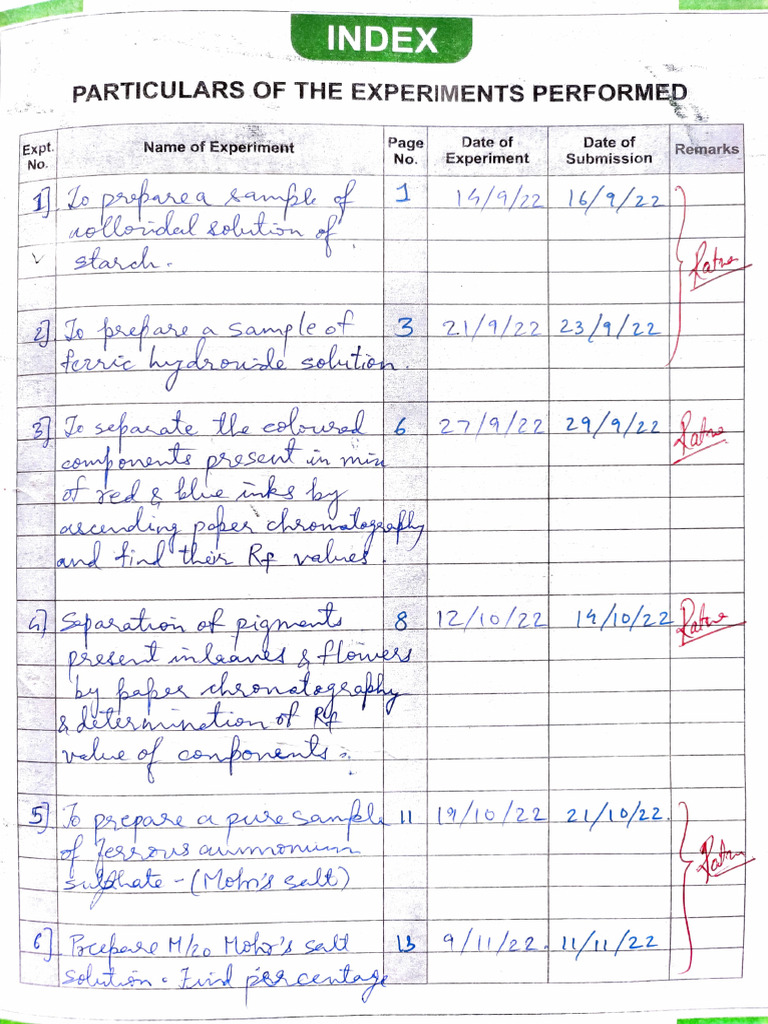 INDEX
PARTICULARS OF THE EXPERIMENTS PERFORMED
Expt. No. Name of Experiment Page No. Date of Experiment Date of Submission Remarks
1] To prepare a sample of 1 14/9/22 16/9/22
colloidal solution of
starch.
Ratna
2] To prepare a sample of 3 21/9/22 23/9/22
ferric hydroxide solution.
3] To separate the coloured 6 27/9/22 29/9/22 Ratna
components present in mix
of red & blue inks by
ascending paper chromatography
and find their Rf values.
4] Separation of pigments 8 12/10/22 14/10/22 Ratna
present in leaves & flowers
by paper chromatography
& determination of Rf
value of components.
5] To prepare a pure sample 11 19/10/22 21/10/22.
of ferrous ammonium
sulphate - (Mohr's salt)
Ratna
6] Prepare M/20 Mohr's salt 13 9/11/22. 11/11/22
solution. Find percentage